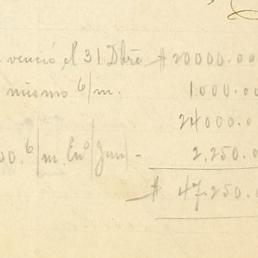 venció el 31 Dbre $ 20000.00
mismo 6/m. 1.000.00
24000.0
00. 6/m. Eno/Jun - 2.250.0
$ 47.250.0